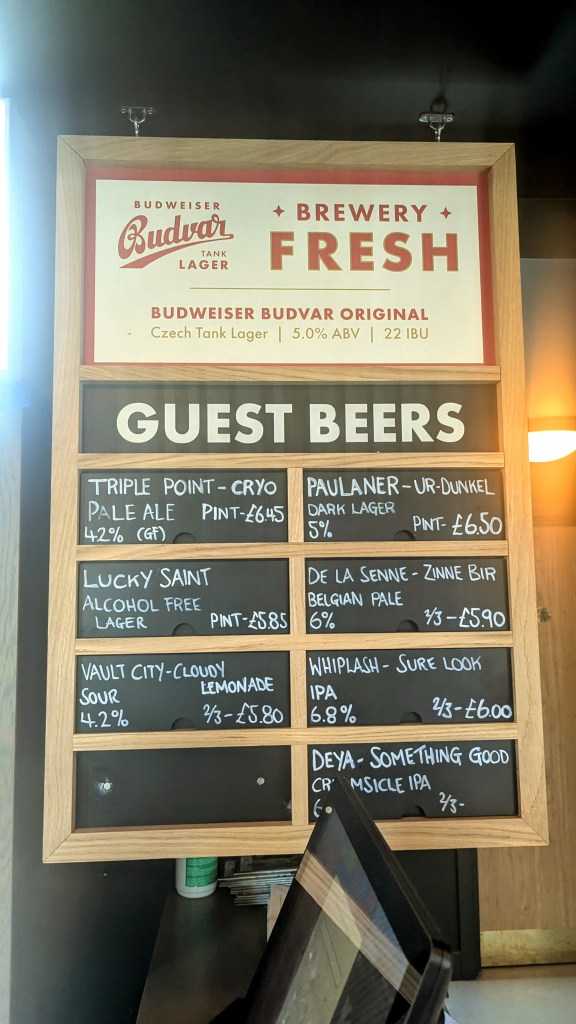 BUDWEISER
Budvar
TANK
LAGER
BREWERY
FRESH
BUDWEISER BUDVAR ORIGINAL
- Czech Tank Lager | 5.0% ABV | 22 IBU
GUEST BEERS
TRIPLE POINT - CRYO
PALE ALE PINT-£6.45
4.2% (GF)
PAULANER - UR-DUNKEL
DARK LAGER
5% PINT- £6.50
LUCKY SAINT
ALCOHOL FREE
LAGER PINT-£5.85
DE LA SENNE - ZINNE BIR
BELGIAN PALE
6% 2/3 - £5.90
VAULT CITY - CLOUDY
SOUR LEMONADE
4.2% 2/3 - £5.80
WHIPLASH - SURE LOOK
IPA
6.8% 2/3 - £6.00
DEYA - SOMETHING GOOD
IPA
2/3-